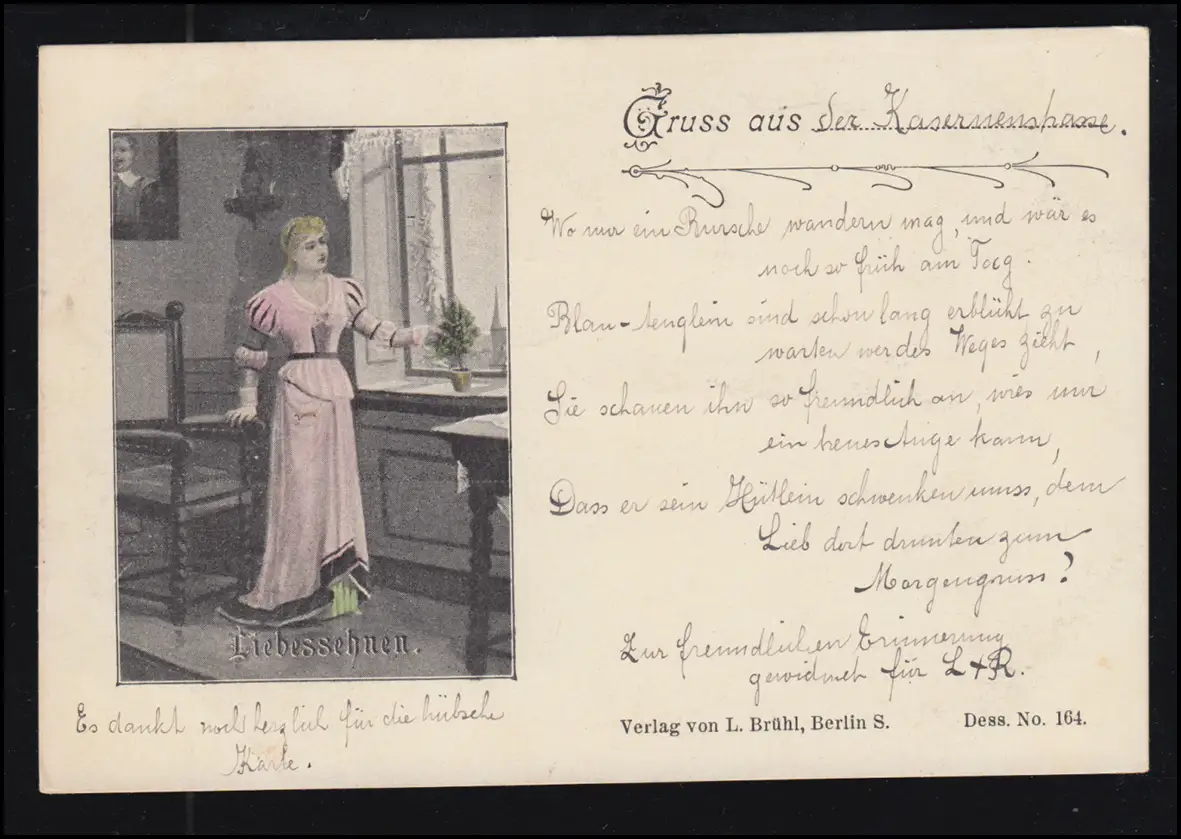 Gruss aus der Kasernenstrasse.
Wo nur ein Bursche wandern mag, und wär es
noch so früh am Tag.
Blau-Äuglein sind schon lang erblüht zu
warten wer des Weges zieht,
Sie schauen ihn so freundlich an, wies nur
ein treues Auge kann,
Dass er sein Hütlein schwenken muss, dem
Lieb dort drunten zum
Morgengruss?
Zur freundlichen Erinnerung
gewidmet für L + R.
Liebessehnen.
Es dankt noch herzlich für die hübsche
Karte.
Verlag von L. Brühl, Berlin S. Dess. No. 164.